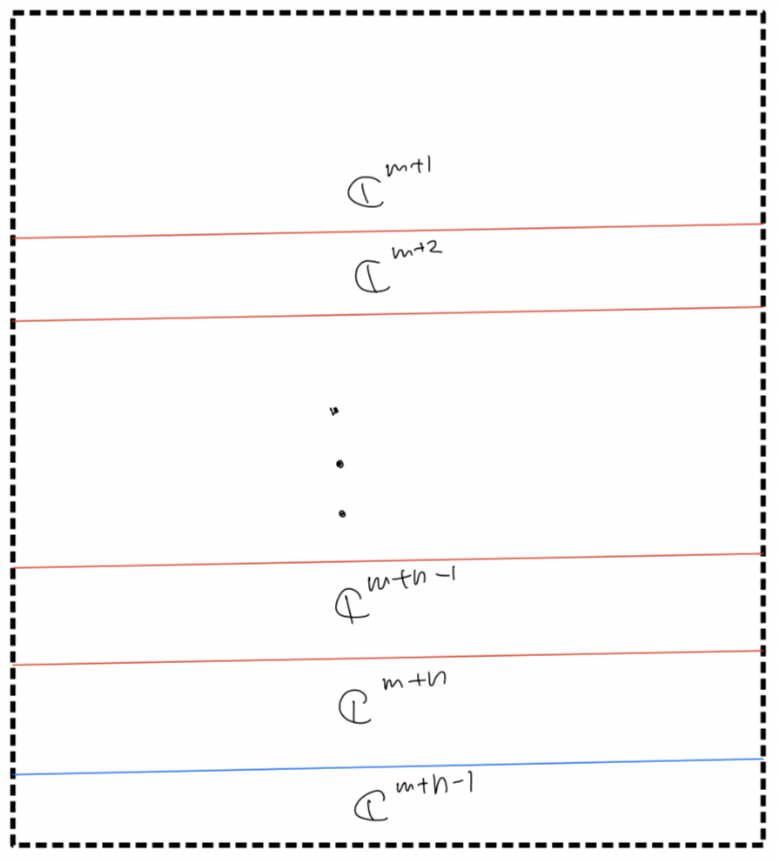 ℂ^{m+1}
ℂ^{m+2}
ℂ^{m+n-1}
ℂ^{m+n}
ℂ^{m+n-1}